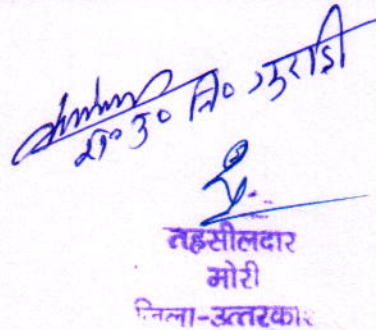 रा० उ० नि० गुराडी
तहसीलदार
मोरी
जिला-उत्तरका